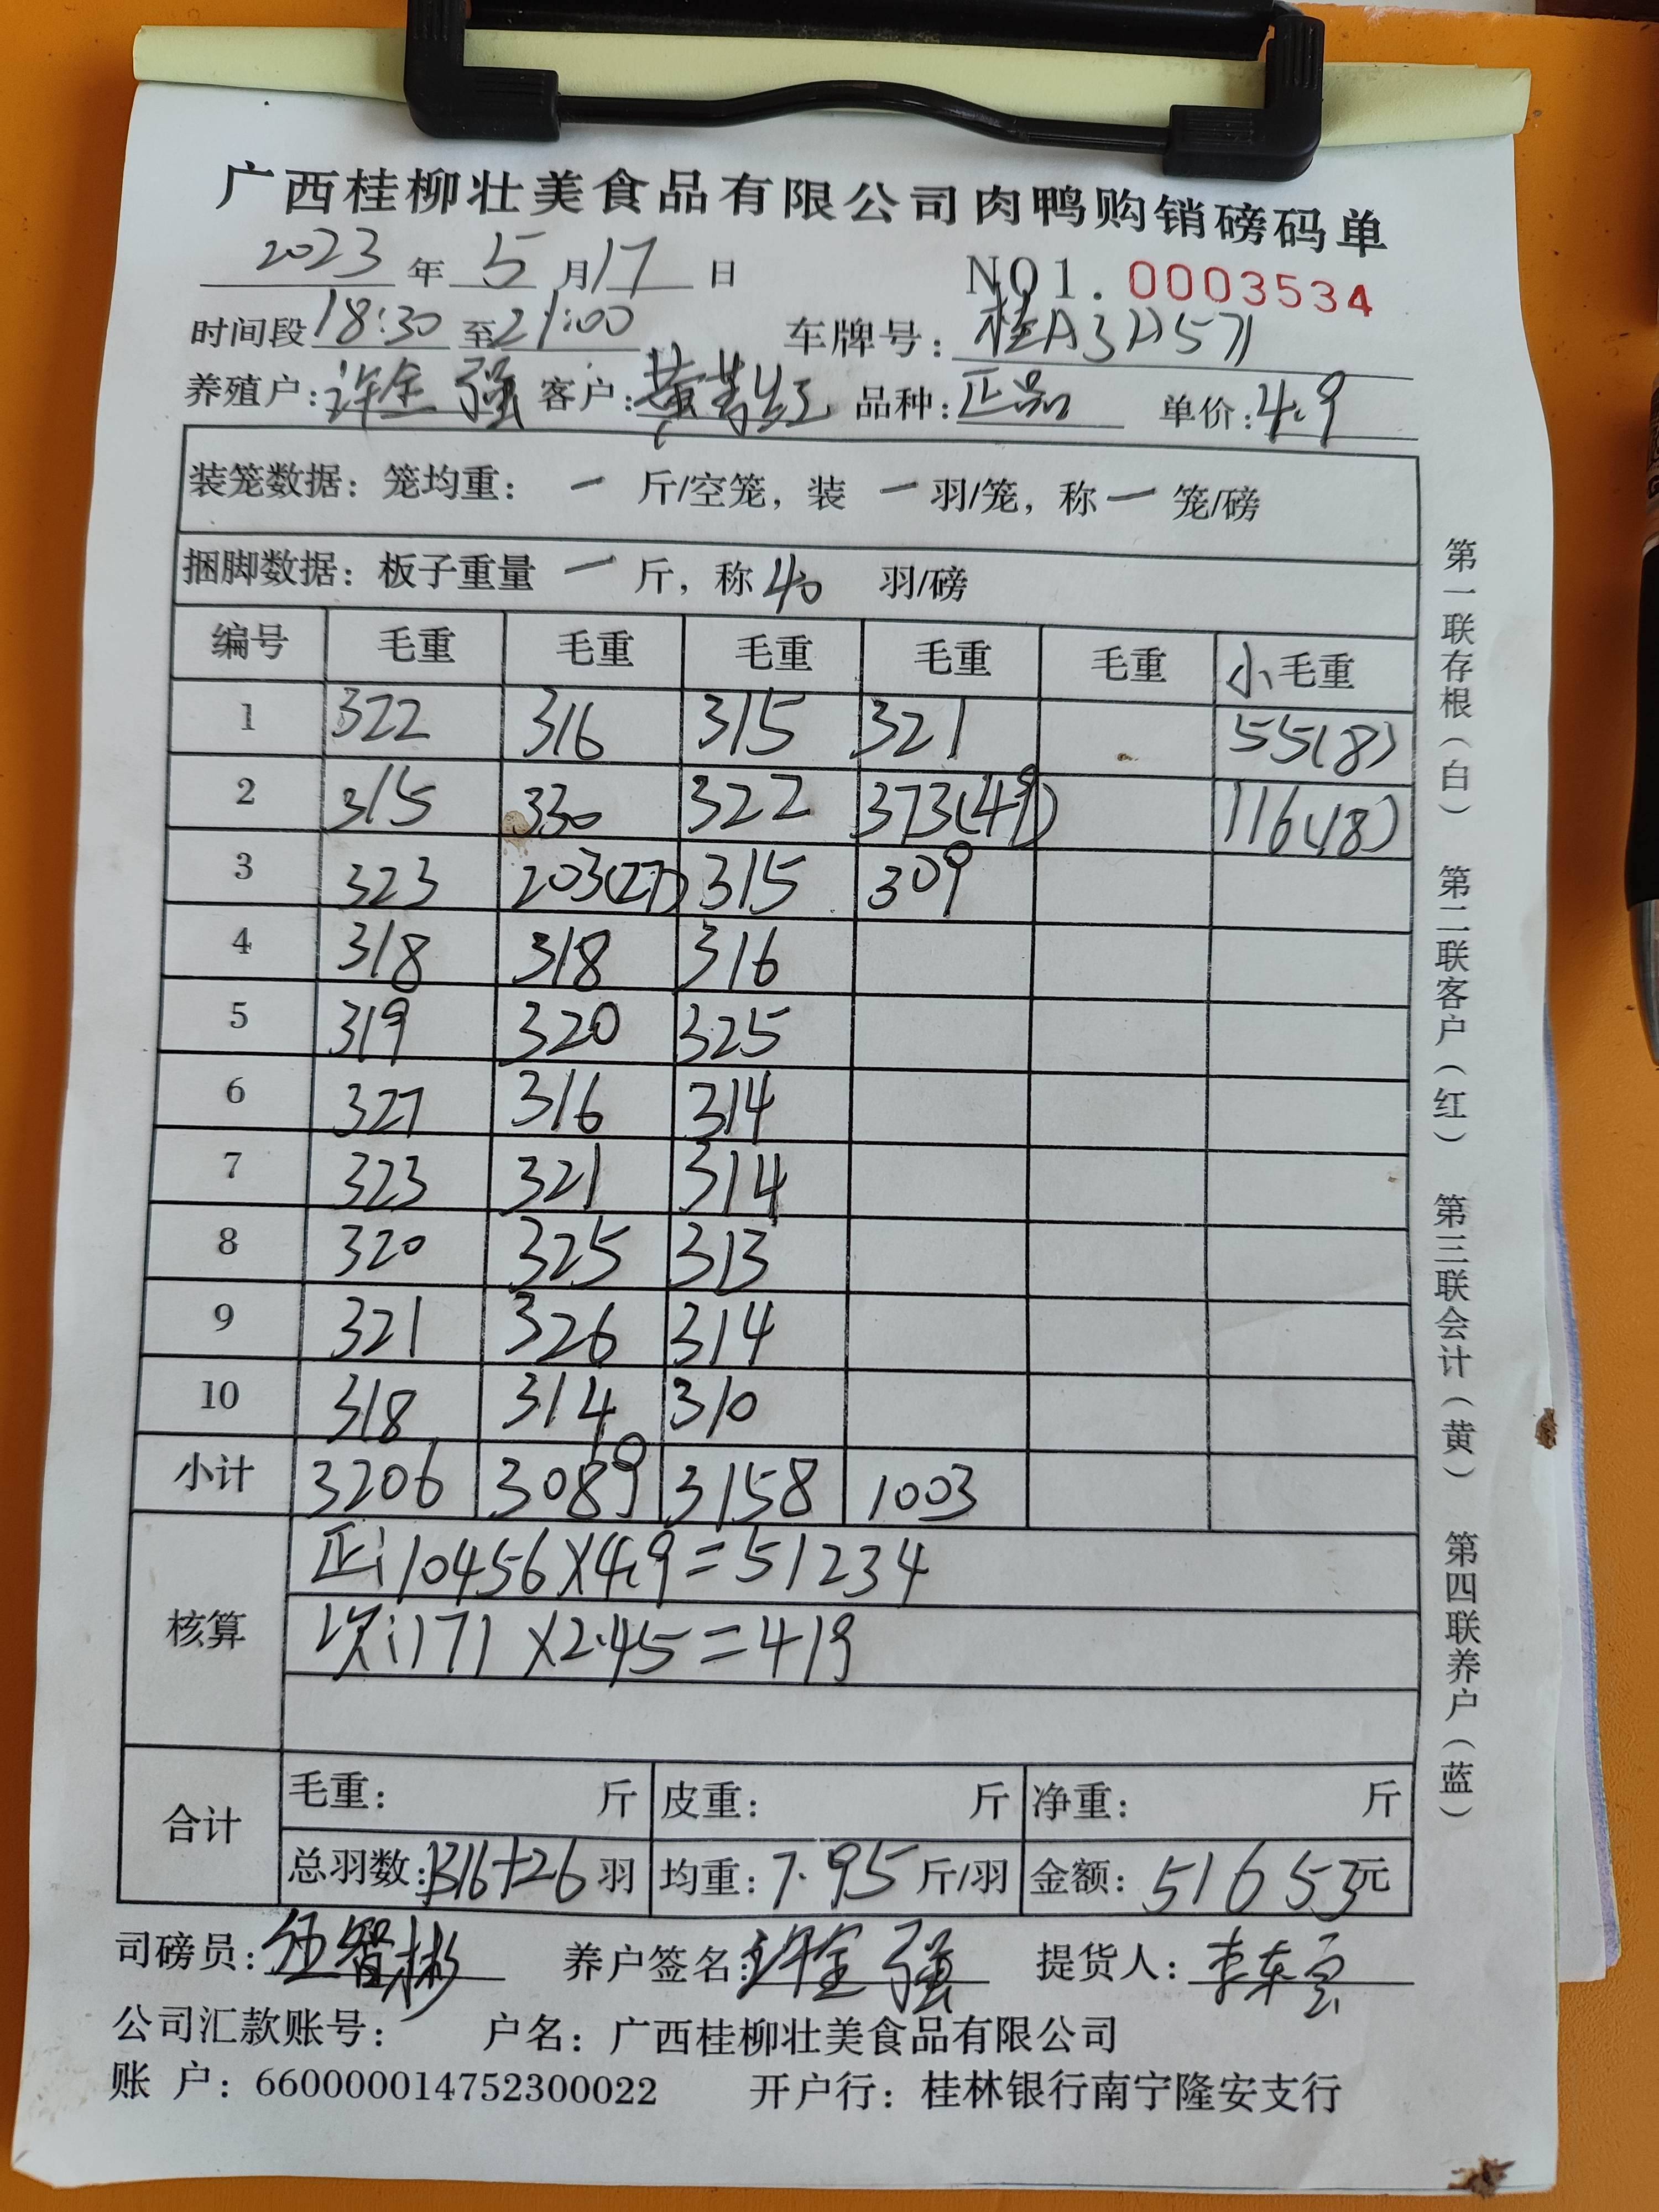 广西桂柳壮美食品有限公司肉鸭购销磅码单
2023年5月17日 NO1.0003534
时间段18:30至21:00 车牌号:桂A3
养殖户:许金强 客户:黄 品种:正品 单价:4.9
装笼数据:笼均重:一斤/空笼,装一羽/笼,称一笼/磅
捆脚数据:板子重量一斤,称40羽/磅
编号 毛重 毛重 毛重 毛重 毛重 小毛重
1 322 316 315 321 55(8)
2 315 330 322 373(49) 116(18)
3 323 203(27) 315 309
4 318 318 316
5 319 320 325
6 327 316 314
7 323 321 314
8 320 325 313
9 321 326 314
10 318 314 310
小计 3206 3089 3158 1003
核算
正:10456×4.9=51234
次:171×2.45=419
合计
毛重: 斤 皮重: 斤 净重: 斤
总羽数:1316+26羽 均重:7.95斤/羽 金额:51653元
司磅员:伍智彬 养户签名:许金强 提货人:李东
公司汇款账号: 户名:广西桂柳壮美食品有限公司
账 户:660000014752300022 开户行:桂林银行南宁隆安支行
第一联存根(白) 第二联客户(红) 第三联会计(黄) 第四联养户(蓝)